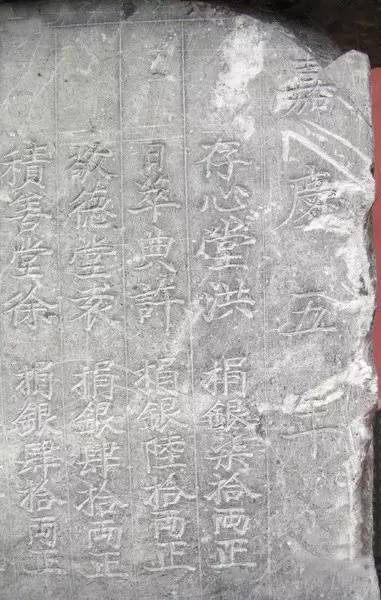 嘉慶五年
存心堂洪捐銀柒拾兩正
日萃典許捐銀陸拾兩正
敬德堂袁捐銀肆拾兩正
積善堂徐捐銀肆拾兩正